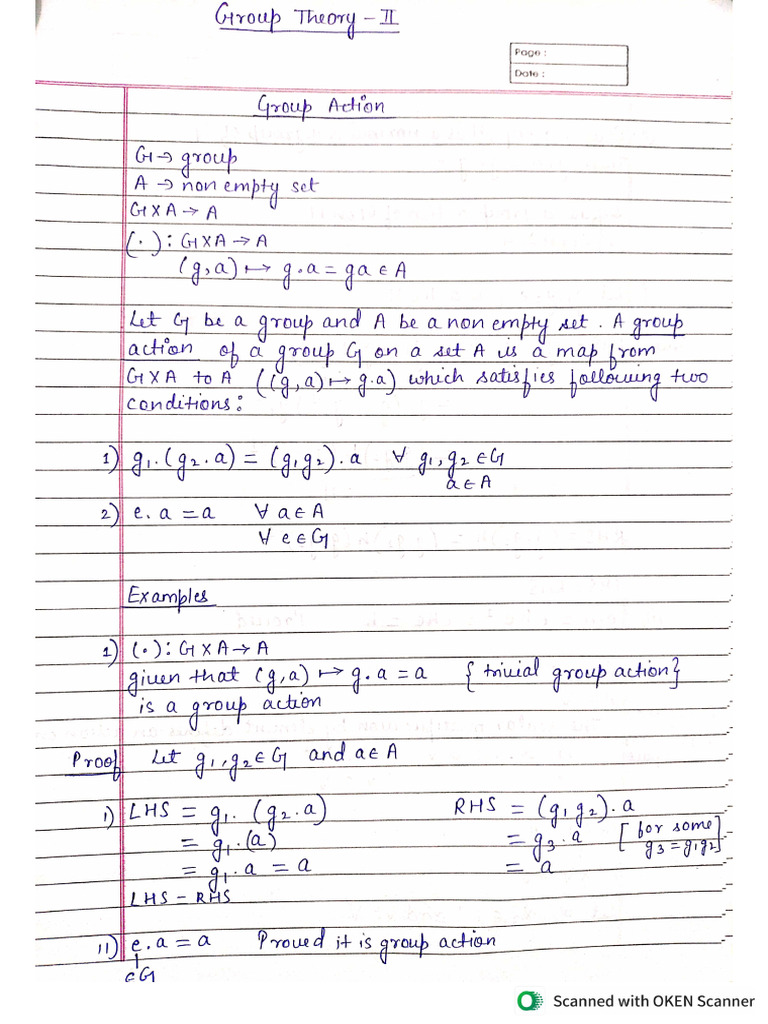 Group Theory - II
Page :
Date :
Group Action
G → group
A → non empty set
G×A → A
(·) : G×A → A
(g,a) ↦ g.a = ga ∈ A
Let G be a group and A be a non empty set. A group
action of a group G on a set A is a map from
G×A to A ((g,a) ↦ g.a) which satisfies following two
conditions:
1) g₁.(g₂.a) = (g₁g₂).a ∀ g₁,g₂ ∈ G
a ∈ A
2) e.a = a ∀ a ∈ A
∀ e ∈ G
Examples
1) (·) : G×A → A
given that (g,a) ↦ g.a = a { trivial group action}
is a group action
Proof Let g₁,g₂ ∈ G and a ∈ A
i) LHS = g₁.(g₂.a) RHS = (g₁g₂).a
= g₁.(a) = g₃.a [for some
= g₁.a = a = a g₃ = g₁g₂]
LHS = RHS
ii) e.a = a Proved it is group action
∈G
Scanned with OKEN Scanner